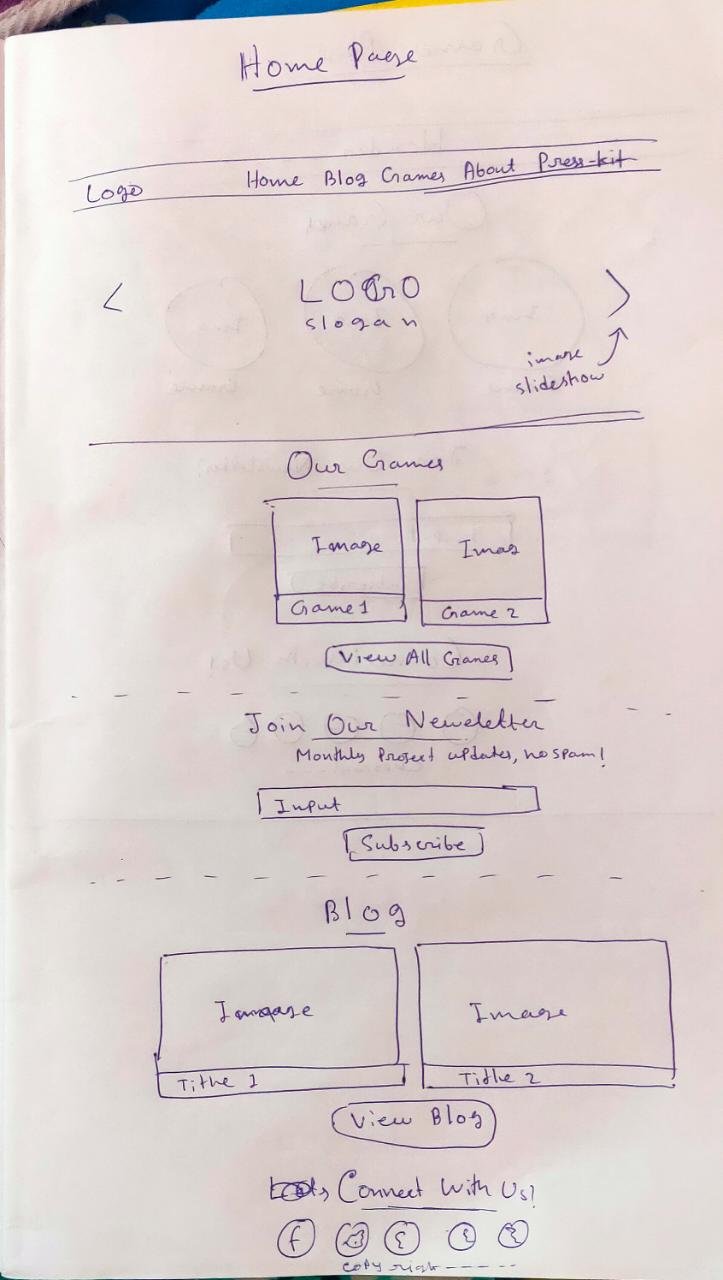 Home Page
Logo Home Blog Games About Press-kit
< LOGO >
slogan
image
slideshow
Our Games
Image Imag
Game 1 Game 2
View All Games
Join Our Newsletter
Monthly Project updates, no spam!
Input
Subscribe
Blog
Image Image
Tithe 1 Tithe 2
View Blog
Connect With Us!
f
copyright